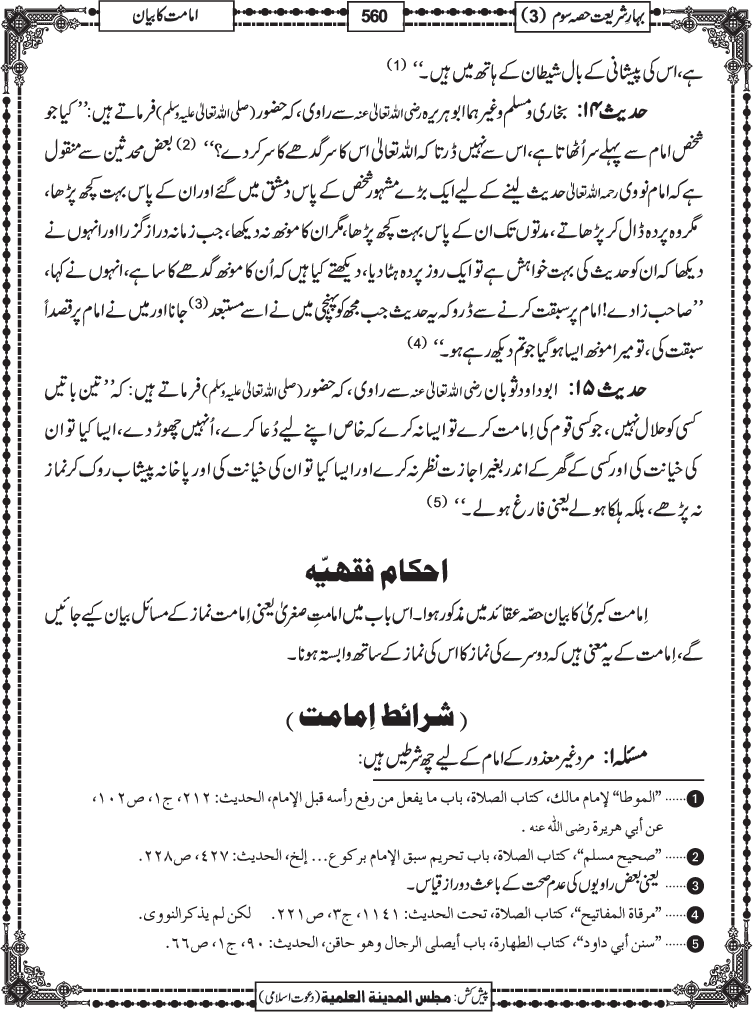 بہارِ شریعت حصہ سوم (3)
560
امامت کا بیان
ہے، اس کی پیشانی کے بال شیطان کے ہاتھ میں ہیں۔‘‘ (1)
حدیث ۱۴: بخاری و مسلم وغیرہما ابوہریرہ رضی اللہ تعالیٰ عنہ سے راوی، کہ حضور (صلی اللہ تعالیٰ علیہ وسلم) فرماتے ہیں: ’’کیا جو
شخص امام سے پہلے سر اُٹھاتا ہے، اس سے نہیں ڈرتا کہ اللہ تعالیٰ اس کا سر گدھے کا سر کر دے؟‘‘ (2) بعض محدثین سے منقول
ہے کہ امام نووی رحمہ اللہ تعالیٰ حدیث لینے کے لیے ایک بڑے مشہور شخص کے پاس دمشق میں گئے اور ان کے پاس بہت کچھ پڑھا،
مگر وہ پردہ ڈال کر پڑھاتے، مدتوں تک ان کے پاس بہت کچھ پڑھا، مگر ان کا مونھ نہ دیکھا، جب زمانہ دراز گزرا اور انہوں نے
دیکھا کہ ان کو حدیث کی بہت خواہش ہے تو ایک روز پردہ ہٹا دیا، دیکھتے کیا ہیں کہ اُن کا مونھ گدھے کا سا ہے، انہوں نے کہا،
’’صاحب زادے! امام پر سبقت کرنے سے ڈرو کہ یہ حدیث جب مجھ کو پہنچی میں نے اسے مستبعد (3) جانا اور میں نے امام پر قصداً
سبقت کی، تو میرا مونھ ایسا ہو گیا جو تم دیکھ رہے ہو۔‘‘ (4)
حدیث ۱۵: ابو داود ثوبان رضی اللہ تعالیٰ عنہ سے راوی، کہ حضور (صلی اللہ تعالیٰ علیہ وسلم) فرماتے ہیں: کہ ’’تین باتیں
کسی کو حلال نہیں، جو کسی قوم کی اِمامت کرے تو ایسا نہ کرے کہ خاص اپنے لیے دُعا کرے، اُنہیں چھوڑ دے، ایسا کیا تو ان
کی خیانت کی اور کسی کے گھر کے اندر بغیر اجازت نظر نہ کرے اور ایسا کیا تو ان کی خیانت کی اور پاخانہ پیشاب روک کر نماز
نہ پڑھے، بلکہ ہلکا ہولے یعنی فارغ ہولے۔‘‘ (5)
احکام فقہیّہ
اِمامت کبریٰ کا بیان حصّہ عقائد میں مذکور ہوا۔ اس باب میں امامتِ صغریٰ یعنی اِمامت نماز کے مسائل بیان کیے جائیں
گے، اِمامت کے یہ معنی ہیں کہ دوسرے کی نماز کا اس کی نماز کے ساتھ وابستہ ہونا۔
(شرائط اِمامت)
مسئلہ ۱: مرد غیر معذور کے امام کے لیے چھ شرطیں ہیں:
1 ...... ”الموطا“ لإمام مالك، كتاب الصلاة، باب ما يفعل من رفع رأسه قبل الإمام، الحديث: ٢١٢، ج١، ص١٠٢،
عن أبي هريرة رضي الله عنه .
2 ...... ”صحيح مسلم“، كتاب الصلاة، باب تحريم سبق الإمام بركوع... إلخ، الحديث: ٤٢٧، ص٢٢٨.
3 ...... یعنی بعض راویوں کی عدم صحت کے باعث دور از قیاس۔
4 ...... ”مرقاة المفاتيح“، كتاب الصلاة، تحت الحديث: ١١٤١، ج٣، ص٢٢١. لكن لم يذكر النووى.
5 ...... ”سنن أبي داود“، كتاب الطهارة، باب أيصلى الرجال وهو حاقن، الحديث: ٩٠، ج١، ص٦٦.
پیش کش: مجلس المدینة العلمیة (دعوت اسلامی)